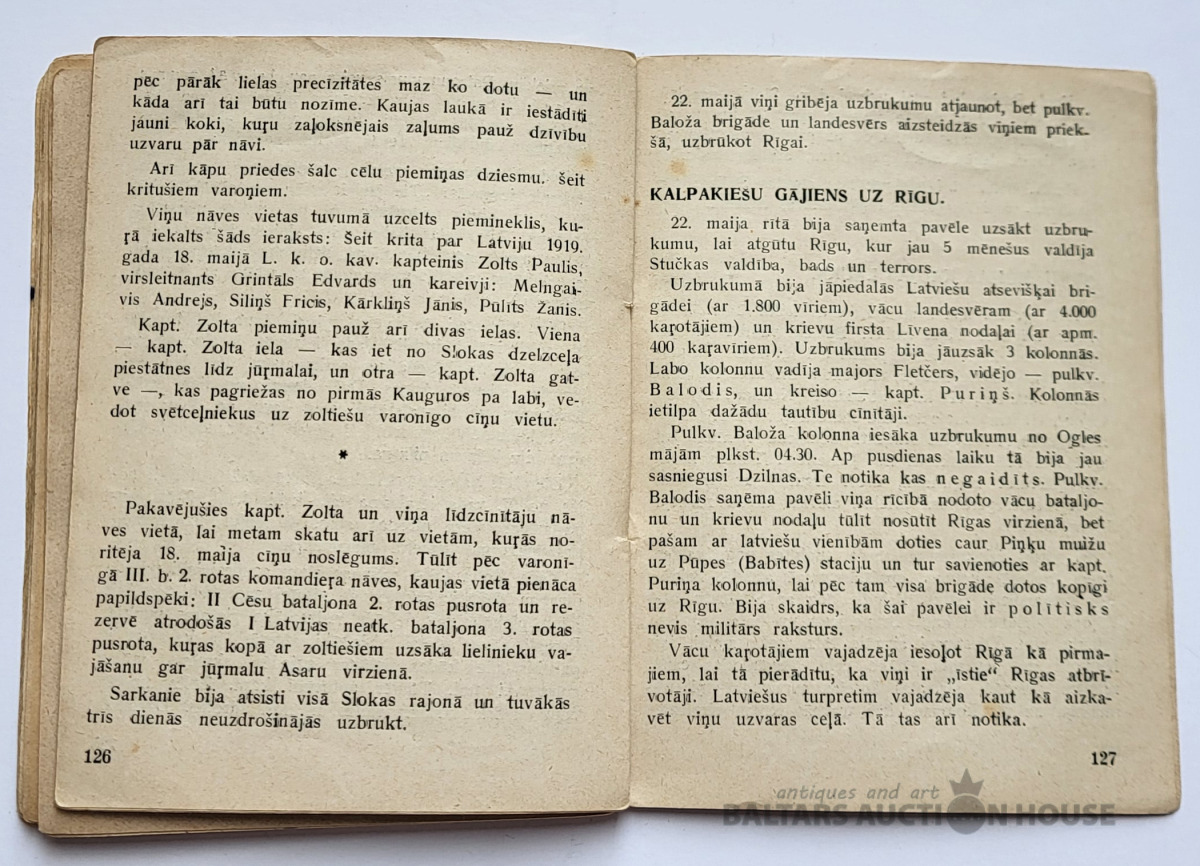 pēc pārāk lielas precīzitātes maz ko dotu — un
kāda arī tai būtu nozīme. Kaujas laukā ir iestādīti
jauni koki, kuŗu zaļoksnējais zaļums pauž dzīvību
uzvaru pār nāvi.
Arī kāpu priedes šalc cēlu piemiņas dziesmu. šeit
kritušiem varoņiem.
Viņu nāves vietas tuvumā uzcelts piemineklis, ku-
ŗā iekalts šāds ieraksts: Šeit krita par Latviju 1919.
gada 18. maijā L. k. o. kav. kapteinis Zolts Paulis,
virsleitnants Grintāls Edvards un kareivji: Melngai-
vis Andrejs, Siliņš Fricis, Kārkliņš Jānis, Pūlīts Žanis.
Kapt. Zolta piemiņu pauž arī divas ielas. Viena
— kapt. Zolta iela — kas iet no Slokas dzelzceļa
piestātnes līdz jūrmalai, un otra — kapt. Zolta gat-
ve —, kas pagriežas no pirmās Kauguros pa labi, ve-
dot svētceļniekus uz zoltiešu varonīgo cīņu vietu.
*
Pakavējušies kapt. Zolta un viņa līdzcīnītāju nā-
ves vietā, lai metam skatu arī uz vietām, kuŗās no-
ritēja 18. maija cīņu noslēgums. Tūlīt pēc varoni-
gā III. b. 2. rotas komandieŗa nāves, kaujas vietā pienāca
papildspēki: II Cēsu bataljona 2. rotas pusrota un re-
zervē atrodošās I Latvijas neatk. bataljona 3. rotas
pusrota, kuŗas kopā ar zoltiešiem uzsāka lielinieku va-
jāšanu gar jūrmalu Asaru virzienā.
Sarkanie bija atsisti visā Slokas rajonā un tuvākās
trīs dienās neuzdrošinājās uzbrukt.
126
22. maijā viņi gribēja uzbrukumu atjaunot, bet pulkv.
Baloža brigāde un landesvērs aizsteidzās viņiem priek-
šā, uzbrūkot Rīgai.
KALPAKIEŠU GĀJIENS UZ RĪGU.
22. maija rītā bija saņemta pavēle uzsākt uzbru-
kumu, lai atgūtu Rīgu, kur jau 5 mēnešus valdīja
Stučkas valdība, bads un terrors.
Uzbrukumā bija jāpiedalās Latviešu atsevišķai bri-
gādei (ar 1.800 vīriem), vācu landesvēram (ar 4.000
kaŗotājiem) un krievu firsta Līvena nodaļai (ar apm.
400 kaŗavīriem). Uzbrukums bija jāuzsāk 3 kolonnās.
Labo kolonnu vadīja majors Fletčers, vidējo — pulkv.
Balodis, un kreiso — kapt. Puriņš. Kolonnās
ietilpa dažādu tautību cīnītāji.
Pulkv. Baloža kolonna iesāka uzbrukumu no Ogles
mājām plkst. 04.30. Ap pusdienas laiku tā bija jau
sasniegusi Dzilnas. Te notika kas negaidīts. Pulkv.
Balodis saņēma pavēli viņa rīcībā nodoto vācu bataljo-
nu un krievu nodaļu tūlīt nosūtīt Rīgas virzienā, bet
pašam ar latviešu vienībām doties caur Piņķu muižu
uz Pūpes (Babītes) staciju un tur savienoties ar kapt.
Puriņa kolonnu, lai pēc tam visa brigāde dotos kopīgi
uz Rīgu. Bija skaidrs, ka šai pavēlei ir polītisks
nevis militārs raksturs.
Vācu kaŗotājiem vajadzēja iesoļot Rīgā kā pirma-
jiem, lai tā pierādītu, ka viņi ir „īstie“ Rīgas atbrī-
votāji. Latviešus turpretim vajadzēja kaut kā aizka-
vēt viņu uzvaras ceļā. Tā tas arī notika.
127
antiques and art
BALTARS AUCTION HOUSE